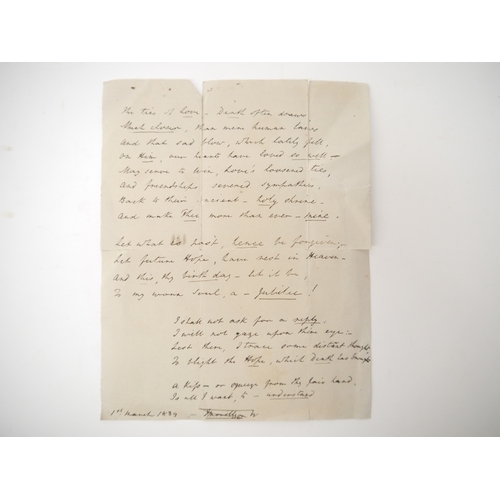 The ties of love - Death often draws
Much closer, than mere human laws
And that sad blow, which lately fell,
On Him, our hearts have loved so well -
May serve to win, Love's loosened ties,
And friendships severed sympathies,
Back to their ancient - holy shrine.
And make Thee more than ever - mine.
Let what is past, hence be forgiven,
Let future Hope, have rest in Heaven -
And this, thy birth day - let it be,
To my worn Soul, a - Jubilee!
I shall not ask for a reply.
I will not gaze upon thine eye -
Lest there, I trace some distant thought
To blight the Hope, which Death has brought
A Kiss - or squeeze from thy fair hand,
Is all I want, to - understand
1st March 1839